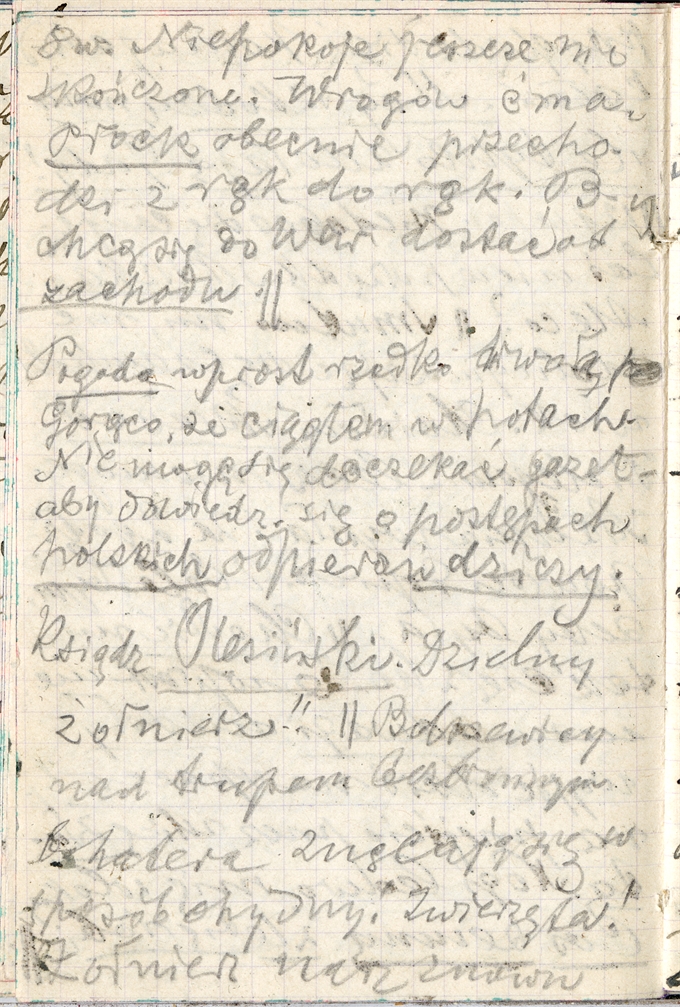 św. Niepokoje jeszcze nie
skończone. Wrogów ćma.
Płock obecnie przecho-
dzi z rąk do rąk. B
chcą się do War dostać od
zachodu !!
Pogoda wprost rzadko trwała
Gorąco, że ciągłem w potach.
Nie mogę się doczekać gazet-
aby dowiedz. się o postępach
polskich odpieran dziczy.
Ksiądz Olesiński. Dzielny
żołnierz"!! Bolszewicy
nad trupem bezbronnym
bohatera znęcają się w
sposób ohydny! Zwierzęta!
Żołnierz nasz znowu